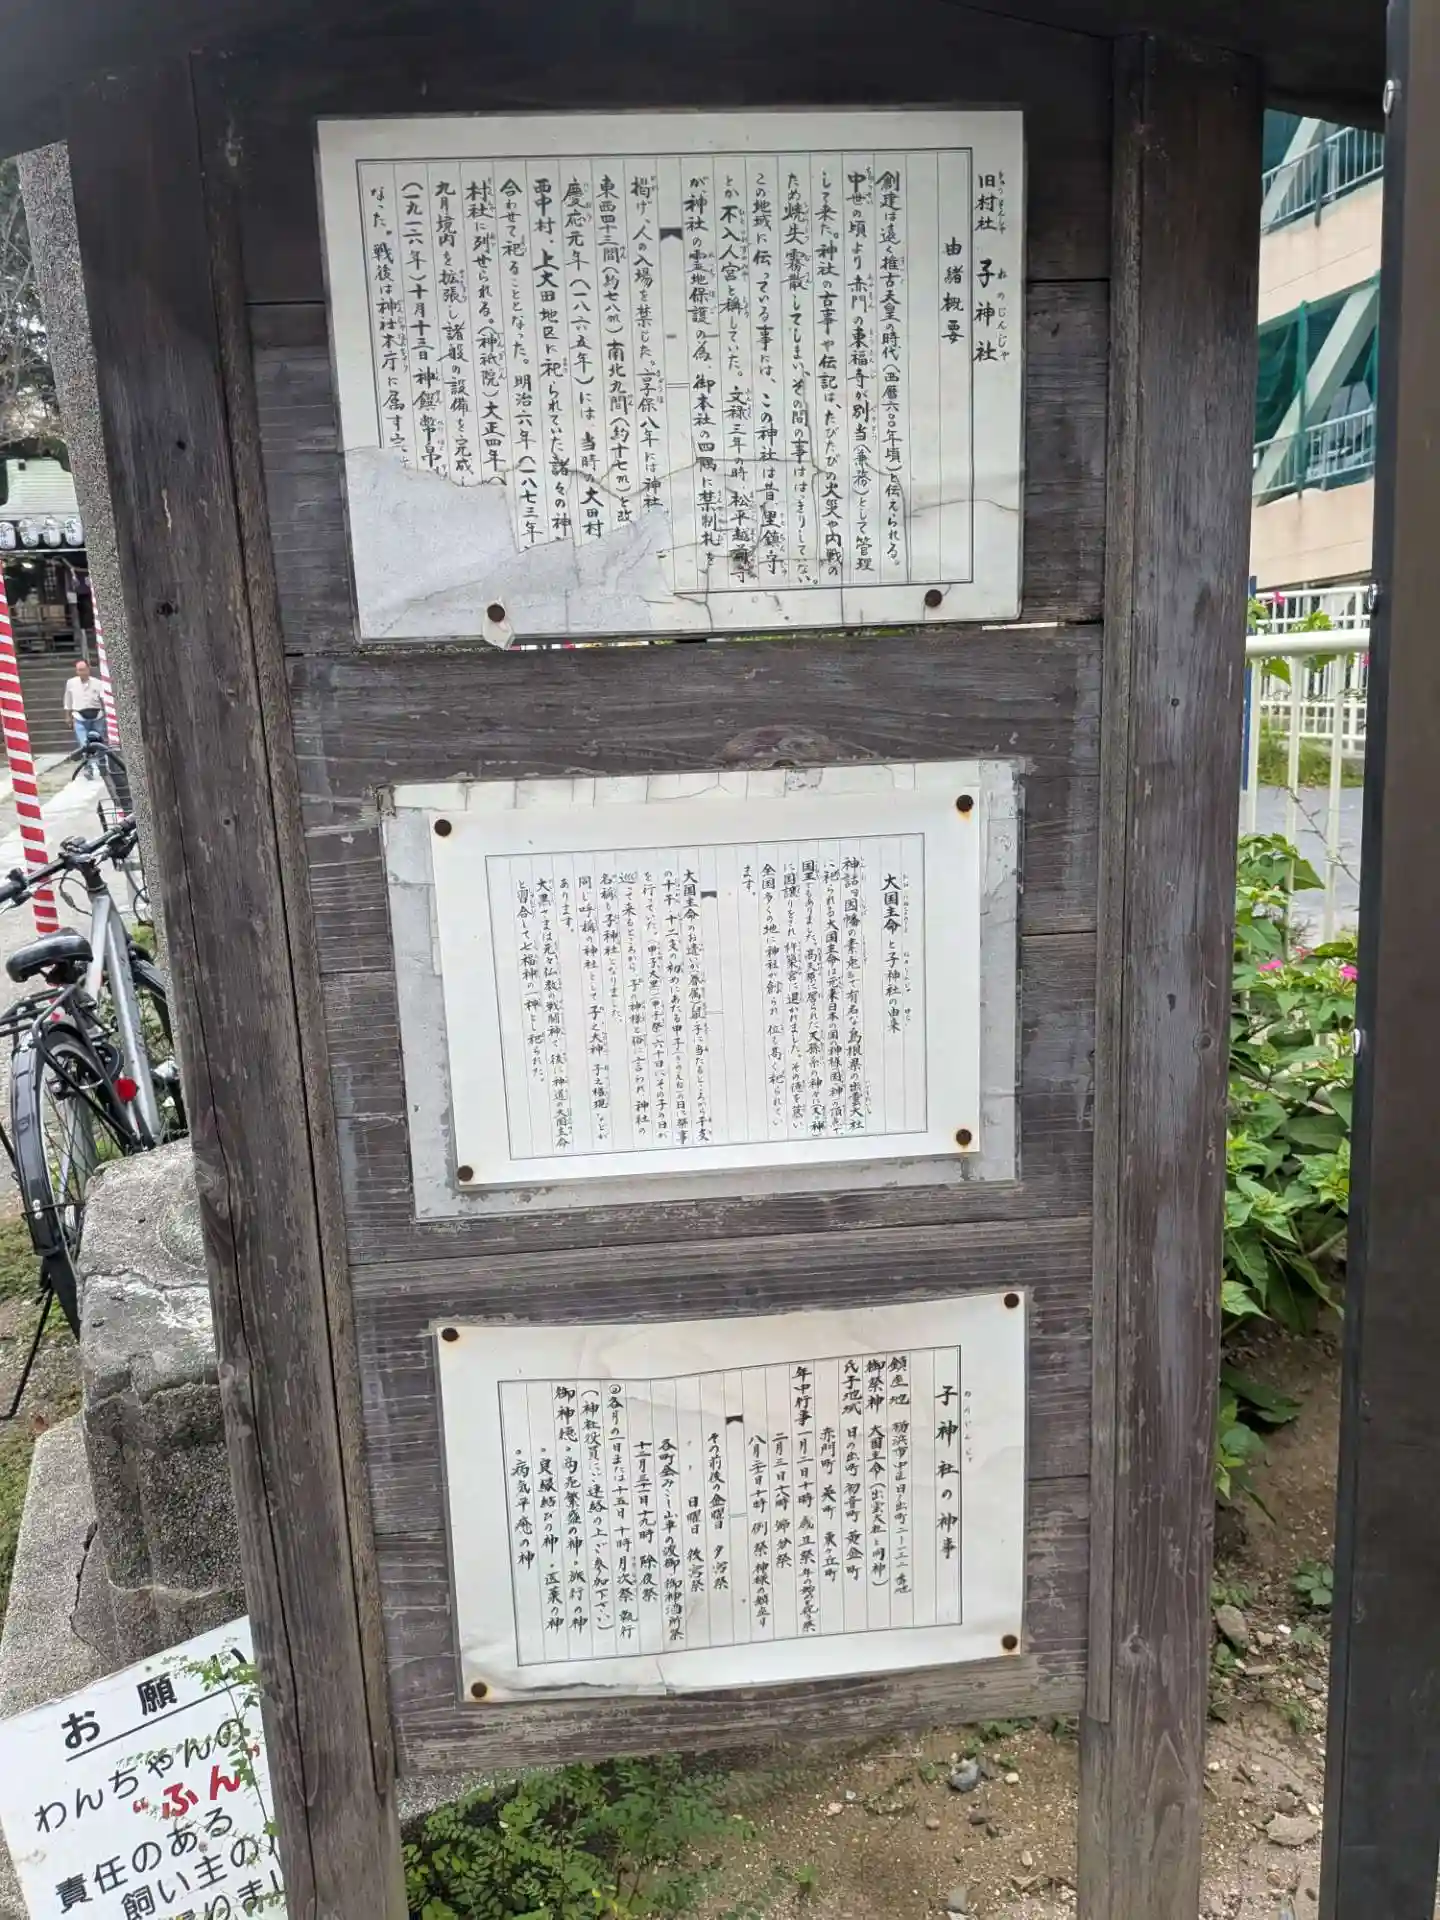 旧村社 子神社
由緒概要
創建は遠く推古天皇の時代(西暦六〇〇年頃)と伝えられる。
中世の頃より赤門の東福寺が別当(兼務)として管理
して来た。神社の古事や伝記は、たびたびの火災や内戦の
ため焼失霧散してしまい、その間の事ははっきりしていない。
この地域に伝っている事には、この神社は昔、里鎮守
とか不入人宮と称していた。文禄三年の時、松平越前守
が、神社の霊地保護の為、御本社の四隅に禁制札を
掲げ、人の入場を禁じた。享保八年には神社
東西四十三間(約七八m)南北九間(約十七m)と改
慶応元年(一八六五年)には、当時の太田村
西中村、上太田地区に祀られていた諸々の神
合わせて祀ることとなった。明治六年(一八七三年
村社に列せられる。(神祇院)大正四年(
九月境内を拡張し諸般の設備を完成
(一九一六年)十月十三日神饌幣帛
なった。戦後は神社本庁に属す
大国主命と子神社の由来
神話の因幡の素兎で有名な島根県の出雲大社
に祀られる大国主命は元来日本の国の神様国神の頂点で
国王でもありました。高天原に居られた天孫系の神々に(天神)
に国譲りをされ杵築宮に退かれました。その徳を慕い
全国多くの地に神社が創られ 位も高く祀られてい
ます。
大国主命のお遣いが(眷属)鼠(子)に当たるところから干支
の十干、十二支の初めにあたる甲子(きのえね)の日に祭事
を行っていた。(甲子大黒)(甲子祭)六十日にその子の日が
巡って来るところから、子の神様と俗に言われ、神社の
名称も子神社となりました。
同じ呼称の神社として子之大神 子之権現 などが
あります。
大黒さまは元々仏教の戦闘神で後に神道の大国主命
と習合して七福神の一神とし祀られた。
子神社の神事
鎮座地 横浜市中区日ノ出町二-一三二番地
御祭神 大国主命(出雲大社と同神)
氏子地域 日の出町 初音町 黄金町
赤門町 英町 東ヶ丘町
年中行事 一月一日十時 歳旦祭 年の初めの祝の祭
二月三日十八時 節分祭
八月二十日十時 例祭 神様の鎮座日
その前後の金曜日 夕宮祭
日曜日 後宮祭
各町会みこし山車の渡御 御神酒所祭
十二月三十一日十九時 除夜祭
各月の一日または十五日 十時 月次祭 執行
(神社役員にご連絡の上ご参加下さい)
御神徳 。商売繁盛の神 。旅行の神
。良縁結びの神 。医薬の神
。病気平癒の神
お願い
わんちゃんの
“ふん”
責任のある
飼い主の